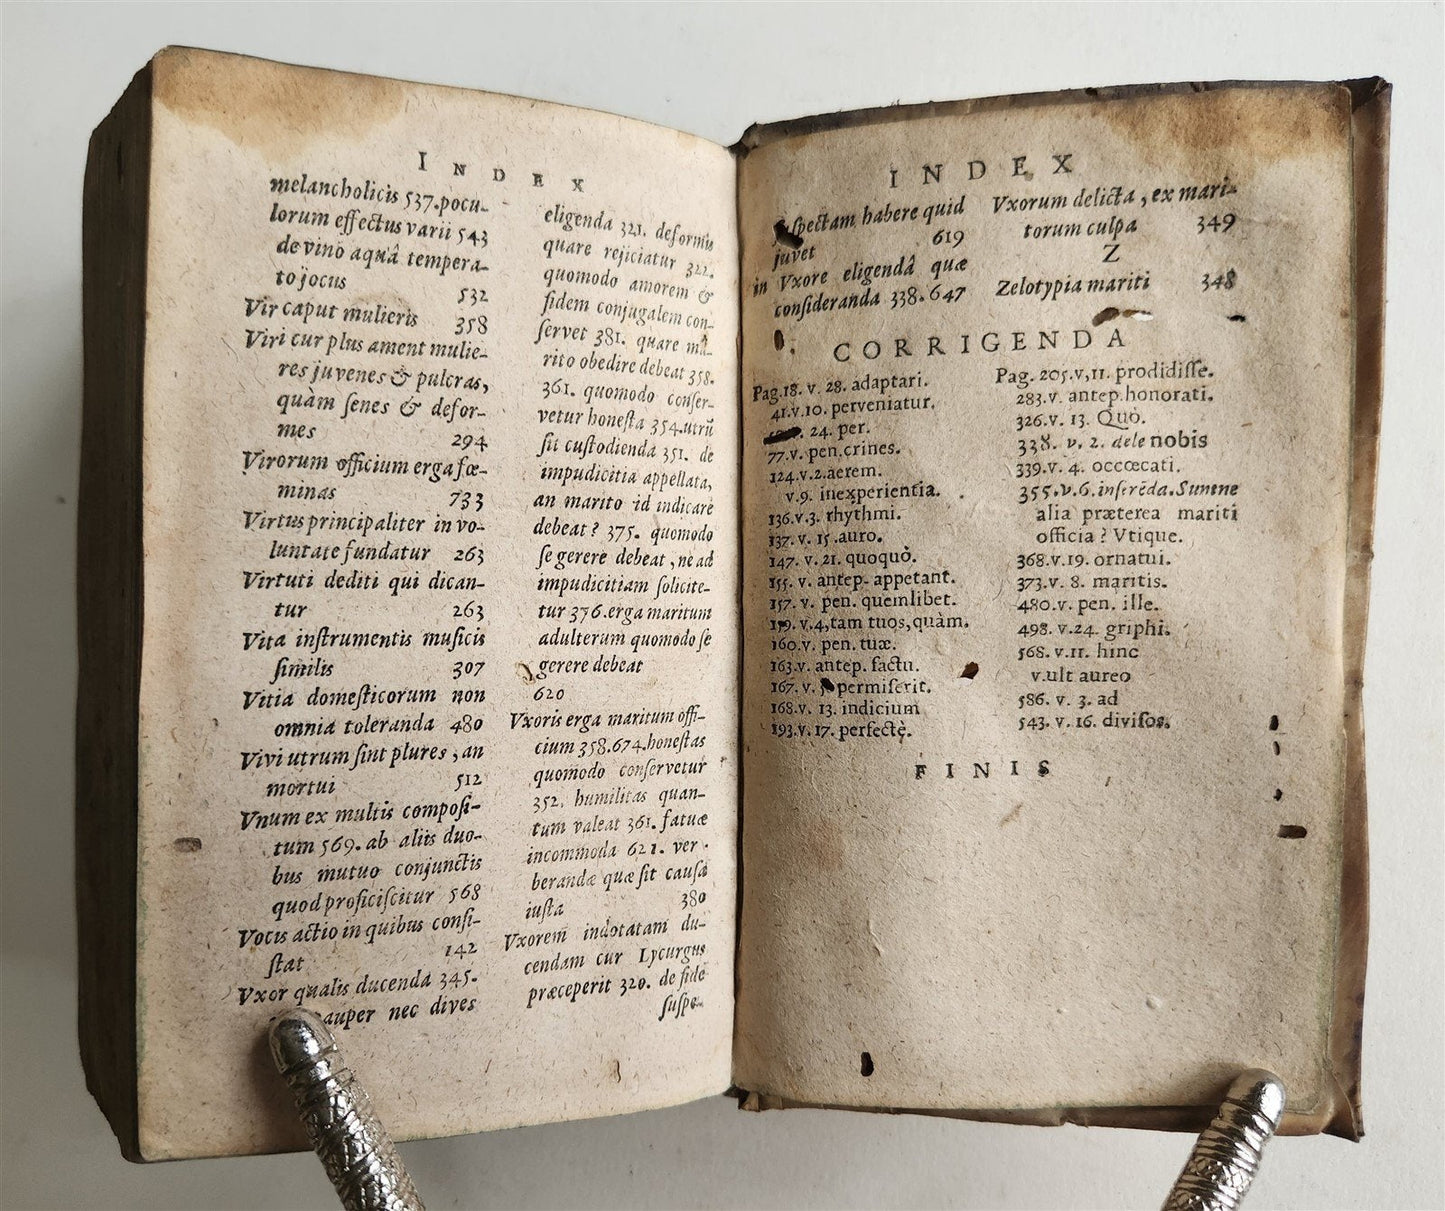 INDEX
melancholicis 537. pocu-
lorum effectus varii 543
de vino aquâ tempera-
to jocus 532
Vir caput mulieris 358
Viri cur plus ament mulie-
res juvenes & pulcras,
quàm senes & defor-
mes 294
Virorum officium erga fœ-
minas 733
Virtus principaliter in vo-
luntate fundatur 263
Virtuti dediti qui dican-
tur 263
Vita instrumentis musicis
similis 307
Vitia domesticorum non
omnia toleranda 480
Vivi utrum sint plures, an
mortui 512
Vnum ex multis composi-
tum 569. ab aliis duo-
bus mutuo conjunctis
quod proficiscitur 568
Vocis actio in quibus consi-
stat 142
Vxor qualis ducenda 345.
pauper nec dives
eligenda 321. deformis
quare rejiciatur 322.
quomodo amorem &
fidem conjugalem con-
servet 381. quare ma-
rito obedire debeat 358.
361. quomodo conser-
vetur honesta 354. utrũ
sit custodienda 351. de
impudicitia appellata,
an marito id indicare
debeat? 375. quomodo
se gerere debeat, ne ad
impudicitiam solicite-
tur 376. erga maritum
adulterum quomodo se
gerere debeat
620
Vxoris erga maritum offi-
cium 358.674. honestas
quomodo conservetur
352. humilitas quan-
tum valeat 361. fatuæ
incommoda 621. ver-
berandæ quæ sit causa
iusta 380
Vxorem indotatam du-
cendam cur Lycurgus
præceperit 320. de fide
suspe-
INDEX
suspectam habere quid
juvet 619
in Vxore eligendâ quæ
consideranda 338.647
Vxorum delicta, ex mari-
torum culpa 349
Z
Zelotypia mariti 348
CORRIGENDA
Pag. 18. v. 28. adaptari.
41. v. 10. perveniatur.
24. per.
77. v. pen. crines.
124. v. 2. aerem.
v. 9. inexperientia.
136. v. 3. rhythmi.
137. v. 15. auro.
147. v. 21. quoquò.
155. v. antep. appetant.
157. v. pen. quemlibet.
v. 4, tam tuos, quàm.
160. v. pen. tuæ.
163. v. antep. factu.
167. v. permiserit.
168. v. 13. indicium
193. v. 17. perfectè.
Pag. 205. v, 11. prodidisse.
283. v. antep. honorati.
326. v. 13. Quò.
338. v. 2. dele nobis
339. v. 4. occœcati.
355. v. 6. inserẽda. Suntne
alia præterea mariti
officia? Vtique.
368. v. 19. ornatui.
373. v. 8. maritis.
480. v. pen. ille.
498. v. 24. griphi.
568. v. 11. hinc
v. ult aureo
586. v. 3. ad
543. v. 16. divisos.
FINIS